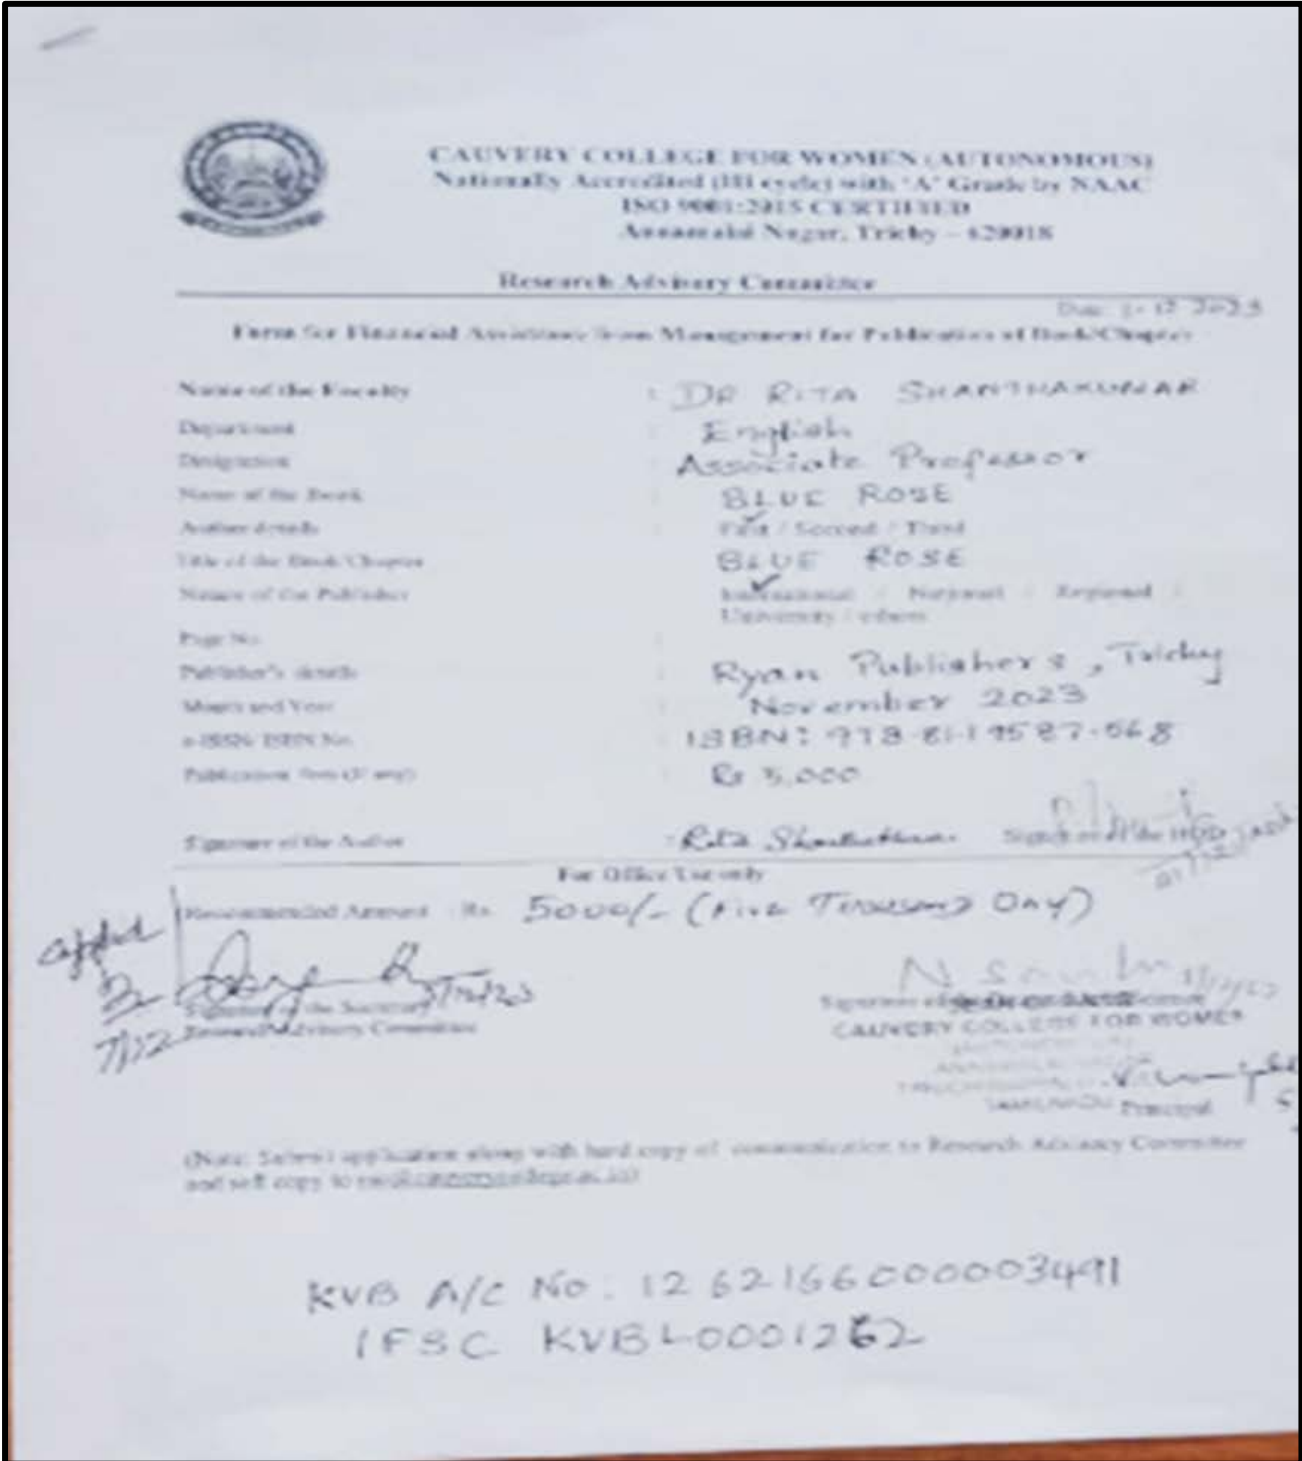 CAUVERY COLLEGE FOR WOMEN (AUTONOMOUS)
Nationally Accredited (III cycle) with 'A' Grade by NAAC
ISO 9001:2015 CERTIFIED
Annamalai Nagar, Trichy – 620018
Research Advisory Committee
Date: 1-12-2023
Form for Financial Assistance from Management for Publication of Book/Chapter
Name of the Faculty : DR RITA SHANTHAKUMAR
Department : English
Designation : Associate Professor
Name of the Book : BLUE ROSE
Author details : First / Second / Third
Title of the Book/Chapter : BLUE ROSE
Nature of the Publisher : International / National / Regional /
University / others
Page No :
Publisher's details : Ryan Publishers, Trichy
Month and Year : November 2023
e-ISSN/ ISBN No. : ISBN: 978-81-19587-568
Publication fees (if any) : Rs 5,000
Signature of the Author Signature of the HOD
For Office Use only
Recommended Amount : Rs. 5000/- (Five Thousand Only)
7/12
Signature of the Secretary
Research Advisory Committee
CAUVERY COLLEGE FOR WOMEN
TAMILNADU Principal
(Note: Submit application along with hard copy of communication to Research Advisory Committee
and soft copy to
KVB A/C No. 1262166000003491
IFSC KVBL0001262